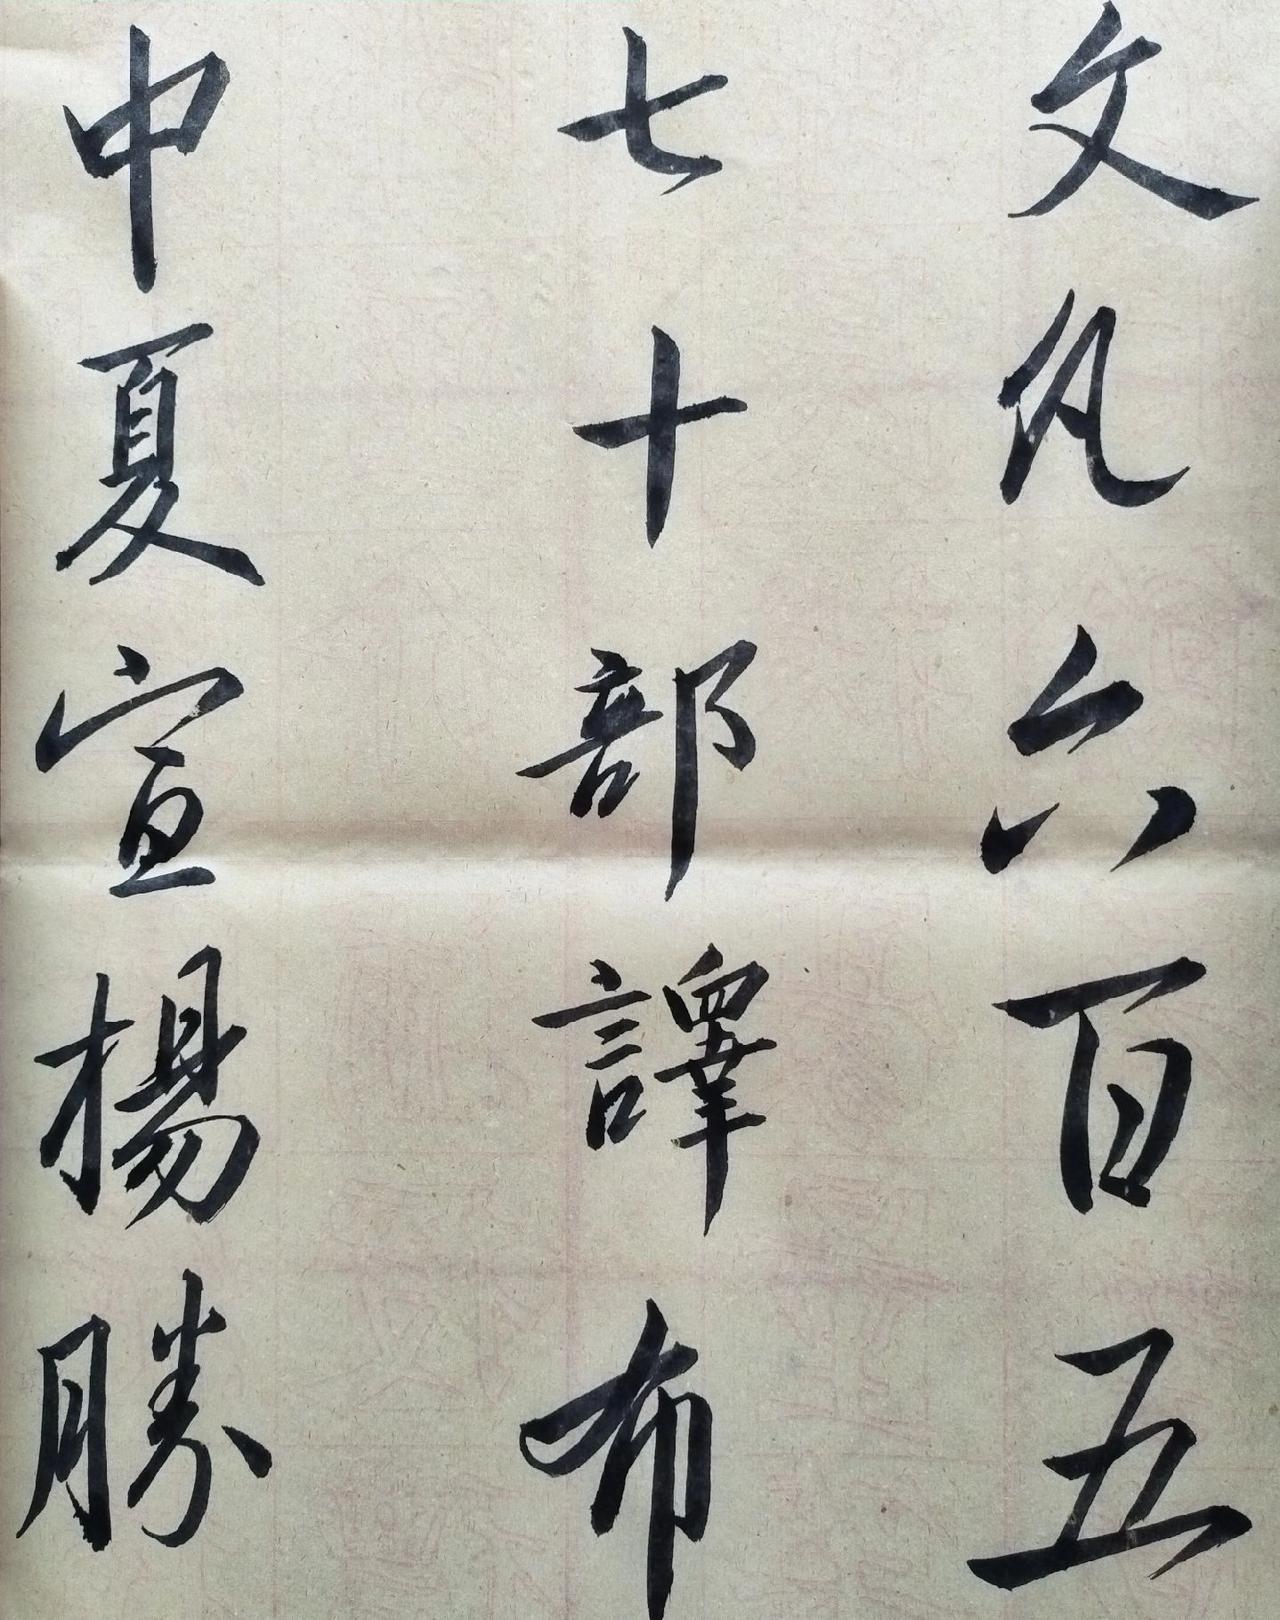 文凡六百五
七十部譯布
中夏宣揚勝